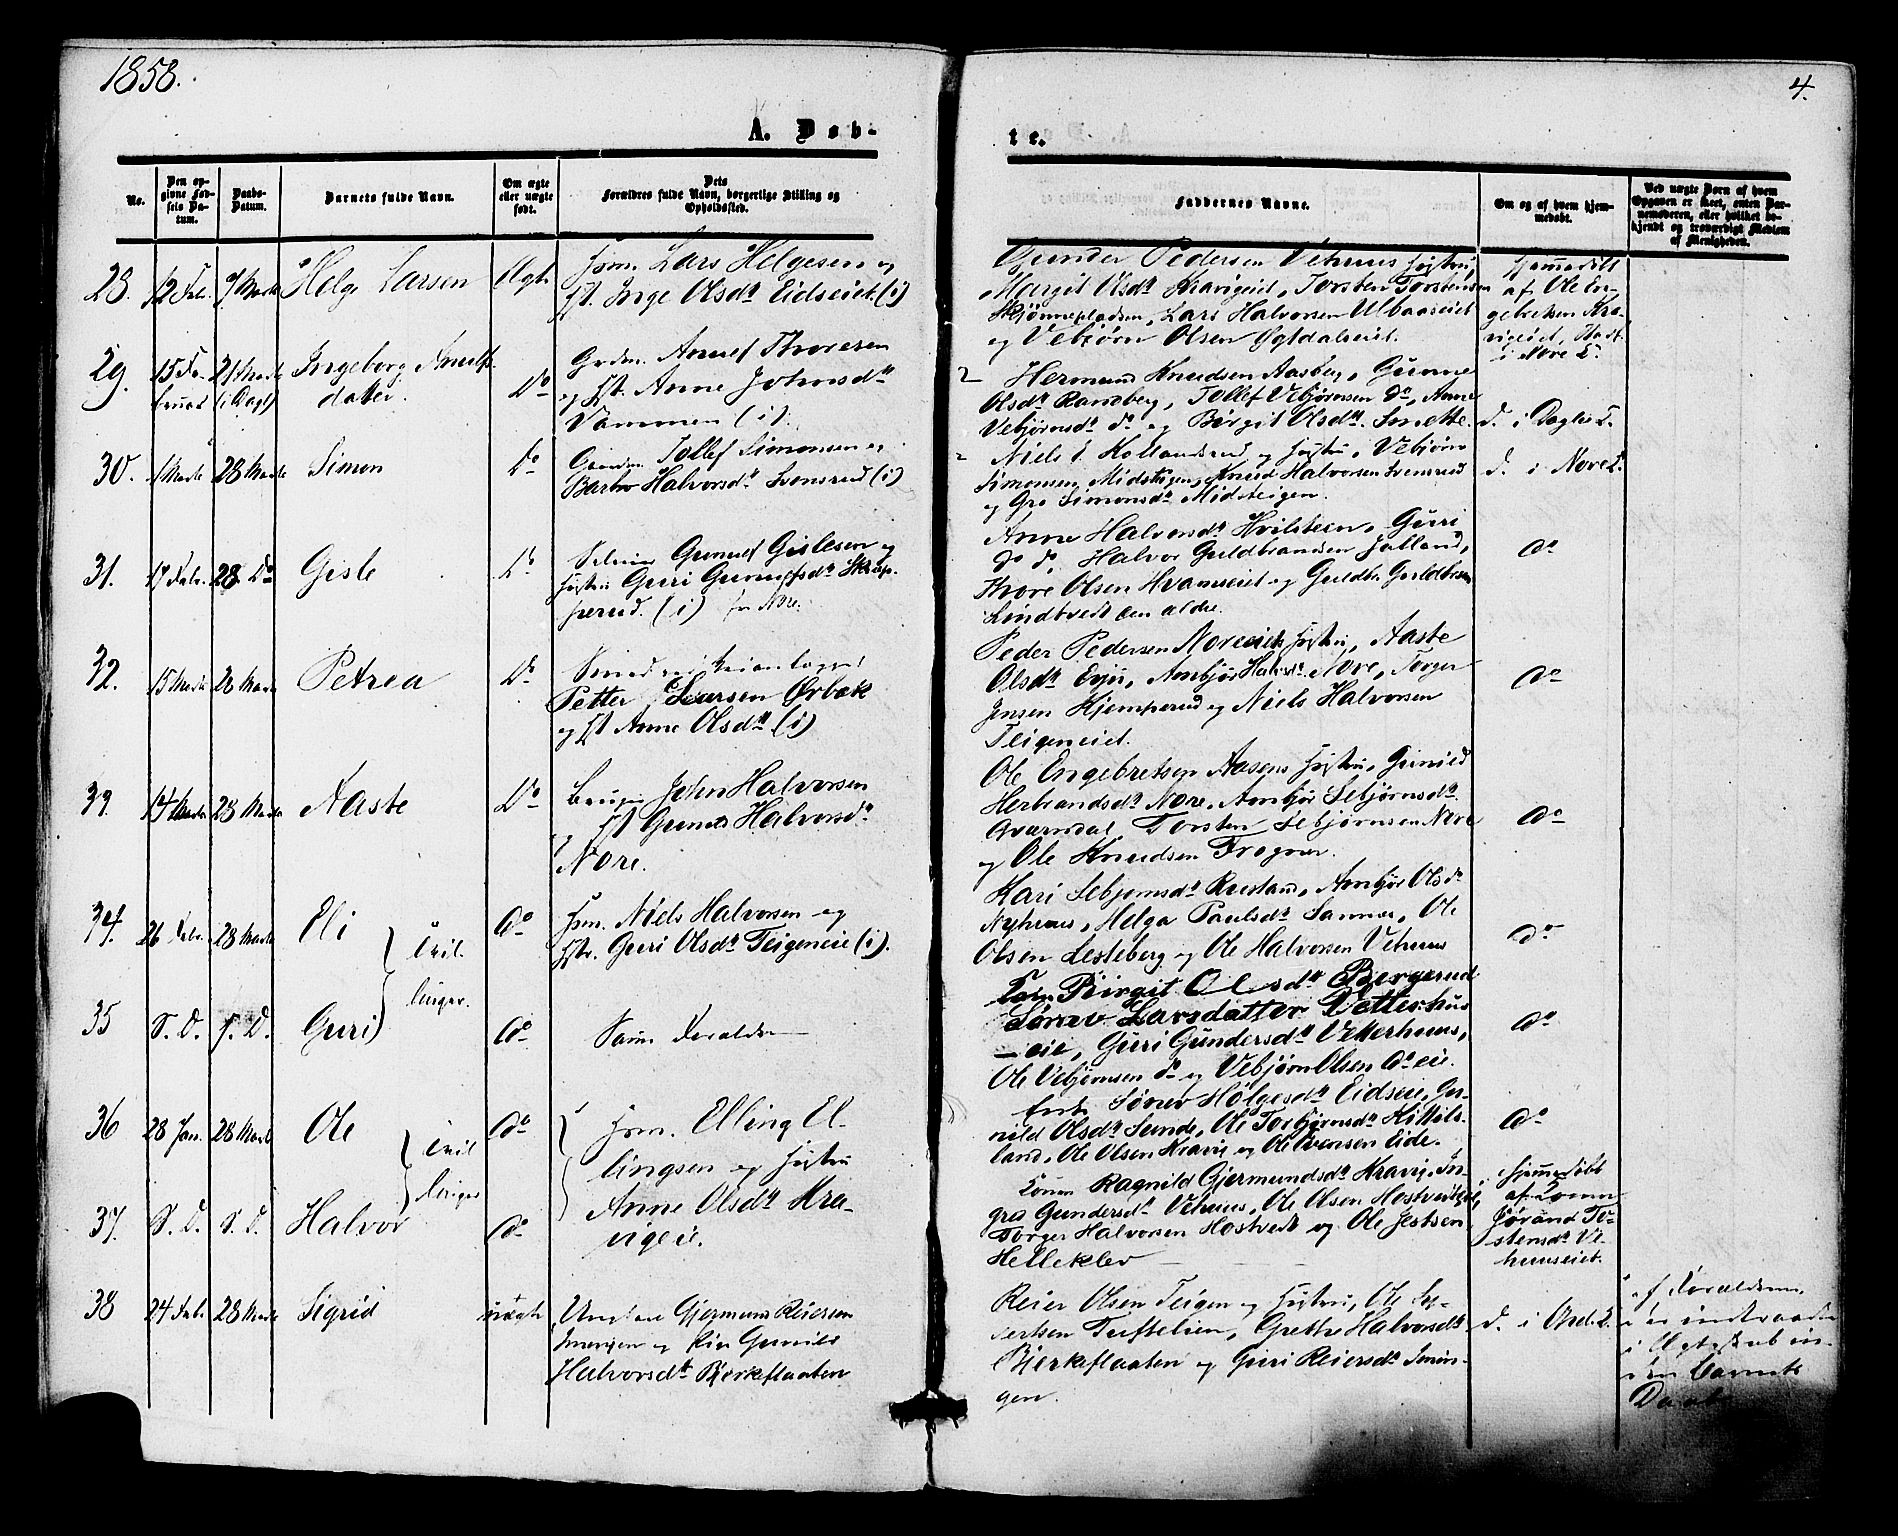 1858.
4.
A. Døb-
te.
No.
Den opgivne Fødsels Datum.
Daabs-Datum.
Barnets fulde Navn.
Om ægte eller uægte født.
Dets Forældres fulde Navn, borgerlige Stilling og Opholdssted.
Faddernes Navne.
Om og af hvem hjemmedøbt.
Ved uægte Børn af hvem Opgaven er skeet, enten Barnemoderen, eller hvilket bekjendt og troværdigt Medlem af Menigheden.
28. 12 Feb. 7 Marts Helge Larsen Ægte
Hsm. Lars Helgesen og
Inge Olsdr Eidseiet (i)
Gunder Pedersen Vehuus Hustru,
Margit Olsdr Kravigeiet, Torsten Torstensen
Skjønnepladsen, Lars Halvorsen Ulbaaseiet
og Vebjørn Olsen Sgtdalseiet.
Hjemmedøbt
af Ole En-
gebretsen Kra-
vigeiet, Stadf.
i Nore K.
29. 15 Fe- 21 Marts Ingeborg
bruar (i Dagli) datter. Do
Grdm. Thoresen
og Anne Johnsdr
Vammen (i).
Hermund Knudsen Aasberg, Gunne
Olsdr Randberg, Tollef Vebjørnsen Do, Anne
Vebjørnsdr do og Birgit Olsdr Smette.
d. i Daglie K.
30. 1 Marts 28 Marts Simon Do
Tollef Simonsen og
Barbro Halvorsdr Svensrud (i)
Niels Kollandsrud og Hustru, Vebjørn
Simonsen Midteigen, Knud Halvorsen Svensrud
og Gro Simonsdr Midteigen.
d. i Nore K.
31. 17 Febr. 28 Do Gisle Do
Gunulf Gislesen og
Hustru Guri Gunulfsdr Skrap-
perud. (i) for Nore.
Anne Halvorsdr Hvilsteen, Guri
do do, Halvor Guldbrandsen Jalland,
Thore Olsen Hvamseiet og Guldbr. Guldbrsen
Lindtvedt den ældre.
do
32. 15 Marts 28 Marts Petrea Do
Petter Larsen Ørbæk
og Anne Olsdr (i)
Peder Pedersen Noreeiet Hustru, Aaste
Olsdr Evju, Ambjør Halvsdr Nore, Torger
Jensen Kjemperud og Niels Halvorsen
Teigeneiet.
do
33. 14 Marts 28 Marts Aaste Do
John Halvorsen
og Gunild Halvorsdr
Nore.
Ole Engebretsen Aasens Hustru, Gunild
Herbrandsdr Nore, Ambjør Sebjørnsdr
Qværndal, Torsten Sebjørnsen Nore
og Ole Knudsen Frogner.
do
34. 26 Febr. 28 Marts Eli do
Hsm. Niels Halvorsen og
Guri Olsdr Teigeneie (i).
Tvil-
linger.
Kari Sebjørnsdr Rustand, Ambjør Olsdr
Nyhuus, Helga Paulsdr Sannes, Ole
Olsen Lesteberg og Ole Halvorsen Vehuus
do
35 S. D. S. D. Guri do
Samme Forældre
Birgit Olsdr Bergerud
Sønev Larsdatter Vetterhus
eie, Guri Gundersdr Vetterhuus,
Ole Vebjørnsen do og Vebjørn Olsen do eie.
do
36 28 Jan. 28 Marts Ole do
Hsm. Elling El-
lingsen og Hustru
Anne Olsdr Kra-
vigeie.
Tvil
linger
Sønev Helgesdr Eidseie, Gu-
nild Olsdr Sunde, Ole Torbjørnsdr Kittils-
land, Ole Olsen Kravig og Ole Iversen Eide.
do
37. S. D. S. D. Halvor do
Konen Ragnild Gjermundsdr Kravig, In-
gred Gundersdr Vehuus, Ole Olsen
Torger Halvorsen Hostvedt og Ole Jestsen
Helleklev
Hjemmedøbt
af Konen
Jørand To-
stensdr Ve-
huuseiet.
38 24 Feb. 28 Marts Sigrid uægte
Ungkarl Gjermund Reiersen
Smengen og Pige Gunild
Halvorsdr Bjerkeflaaten
Reier Olsen Teigen og Hustru, Ole Sy-
vertsen Tuftelien, Grethe Halvorsdr
Bjerkeflaaten og Guri Reiersdr Smen-
gen.
d. i Opd. K.
af Forældrene,
i Ægteskab in-
den Barnets
Daab